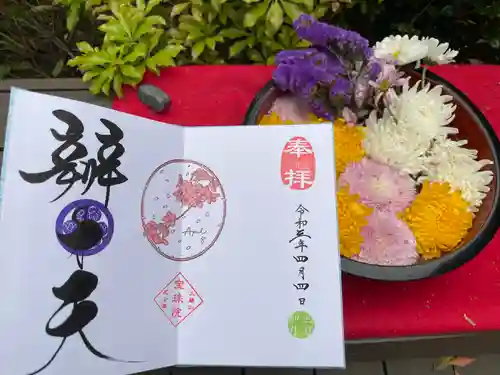 奉拝
令和五年四月四日
April
8
辯
天
宝珠院